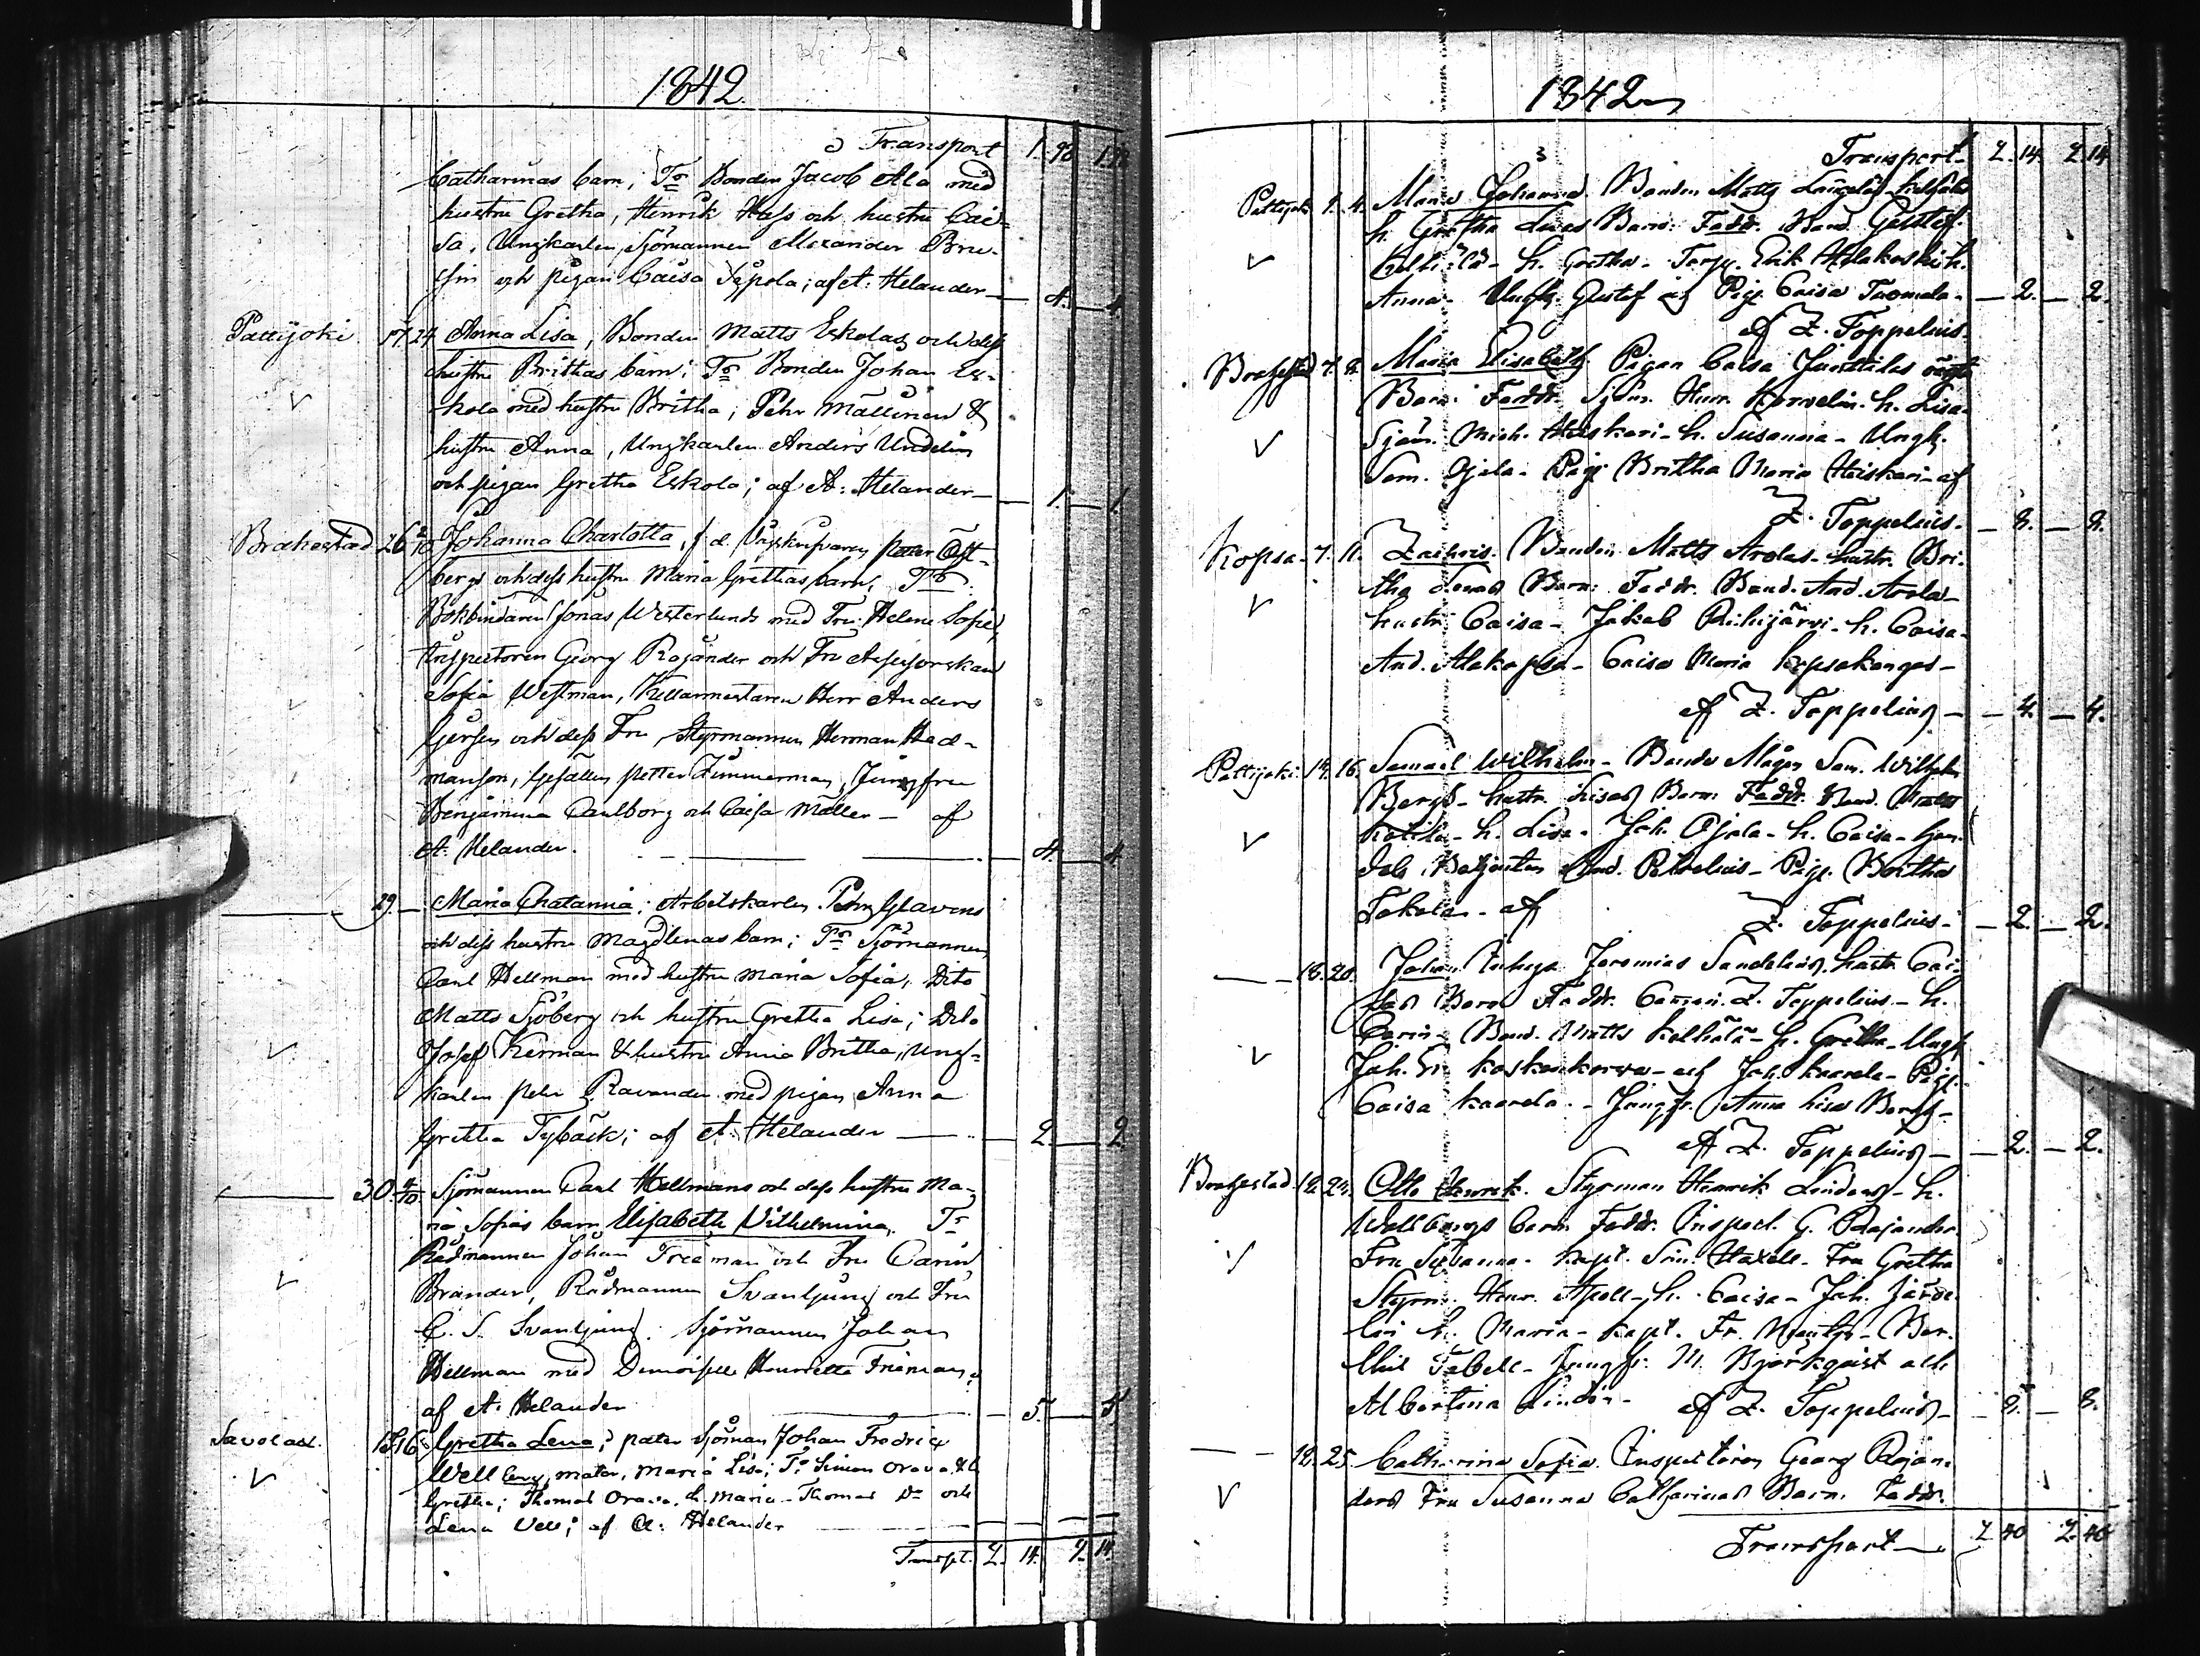 1842
Transport 1. 96 1. 96
Catharinas barn; Tr Bonden Jacob Ala med
hustru Gretha, Henrik Hass och hustru Cai-
sa, Ungkarlen Sjömannen Alexander Bru-
och pigan Caisa Sippola; af A. Helander — 4. — 4
Pattijoki 17 24 Anna Lisa, Bonden Matts Eskolas och dess
hustru Brithas barn; Tr Bonden Johan Es-
kola med hustru Britha, Pehr Mällinen &
hustru Anna, Ungkarlen Anders Undelin
och pigan Gretha Eskola; af A. Helander — 1. — 1
Brahestad 26 2/10 Johanna Charlotta, f. d. Petter Öst-
bergs och dess hustru Maria Grethas barn; Tr
Bokbindaren Jonas Westerlund med Fru Helena Sofia,
Inspectoren Georg Rajander och Fru Assessorskan
Sofia Westman, Källarmästaren Herr Anders
och dess Fru, Styrmannen Herman Hed-
manson, Gesällen Petter Zimmerman, Jungfru
Benjamina Carlborg och Caisa Möller — af
A. Helander. — 4. — 4
29. — Maria Chatarina; Arbetskarlen Pehr Glavins
och dess hustru Magdlenas barn; Tr Sjömannen
Carl Hellman med hustru Maria Sofia, Dito
Matts Sjöberg och hustru Gretha Lisa; Dito
Josef Kerman & hustru Anna Britha, Ung-
karlen Pehr Ravander med pigan Anna
Gretha Tybäck; af A. Helander — 2. — 2
30 4/10 Sjömannen Carl Hellmans och dess hustru Ma-
ria Sofias barn Elisabeth Vilhelmina, Tr
Rådmannen Johan Frieman och Fru Carin
Brander, Rådmannen Svanljung och Fru
C. S. Svanljung. Sjömannen Johan
Hellman med Demoiselle Henrietta Frieman;
af A. Helander — 5 — 5
Savolax. 15 16 Gretha Lena; pater Sjöman Johan Fredric
Wellberg, mater, Maria Lisa; Tr Simon Orava & h
Gretha; Thomas Orava, h. Maria - Thomas Do och
Lena Vell; af A. Helander
Transpt. 2. 14. 2. 14
1842
Transport 2. 14 2. 14
Pattijoki 1. 4. Maria Johanna. Bonden Matts
h. Gretha Lenas Barn: Faddr. Bond. Gustaf
Kelhälä - h. Gretha - Torp. Erik Halakoski h.
Anna - Ungk. Gustaf och Pig. Caisa Tuomela - — 2. — 2.
af Z. Toppelius.
Brahestad 7. 8. Maria Elisabeth Pigan Caisa Junttilas oägta
Barn: Faddr. Sjöm. Henr. Kornelin - h. Lisa -
Sjöm. Mich. Heiskari - h. Susanna - Ungk.
Sam. Ojala - Pig. Britha Maria Heiskari - af
Z. Toppelius. — 8. — 8.
Kopsa - 7. 11. Zachris. Bonden Matts Arolas - hustr. Bri-
tha Lenas Barn: Faddr. Bond. And. Arola -
hustr. Caisa - Jakob Pichijärvi - h. Caisa -
And. Alakopsa - Caisa Maria Kopsakangas -
af Z. Toppelius — 4. — 4.
Pattijoki 14. 16. Samuel Wilhelm - Bonde Mågen Sam. Wilhelm
Bergs - hustr. Lisas Barn: Faddr. Bond. Matts
Kotila - h. Lisa - Joh. Ojala - h. Caisa - Han-
dels Betjenten And. Pehrelius - Pig. Britha
Tokola - af Z. Toppelius - — 2. — 2.
— 18. 20. Johan Inhys. Jeremias Sandelius, hustr. Cai-
sas Barn Faddr. Z. Toppelius - h.
Carin - Bond. Matts Kelhälä - h. Gretha - Ungk.
Joh. Er. Koskenkorva - och Joh. Kaarela - Pig.
Caisa Kaarela - Jungfr. Anna Lisa Berg -
af Z. Toppelius — 2. — 2.
Brahestad. 12. 24. Otto Henrik. Styrman Henrik Linders - h.
Wallborgs barn Faddr. Inspect. G. Rajander
Fru Susanna - Kapt. Sim. Haxell - Fru Gretha
Styrm. Henr. Apell - h. Caisa - Joh. Järve-
lin h. Maria - Kapt. Fr. - Ber.
Tabell - Jungfr. M. Björkqvist och
Albertina Lindén - af Z. Toppelius — 8. — 8.
— 19. 25. Catharina Sofia. Inspectoren Georg Rajan-
ders Fru Susanna Catharinas Barn: Faddr.
Transport — 2. 40 2. 40